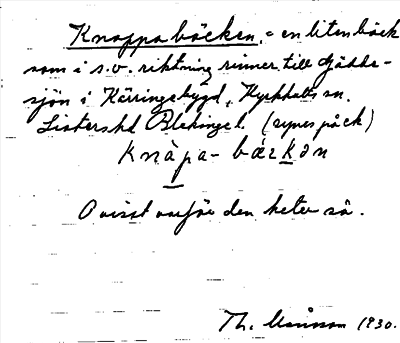 Knappabäcken, = en liten bäck
som i s.v. riktning rinner till Gädde-
sjön i Käringabygd, Kyrkhults sn.
Listers hd Blekinge l. (synes på ek)
Knàpa-bæʀkən
Ovisst varför den heter så.
Th. Månsson 1930.